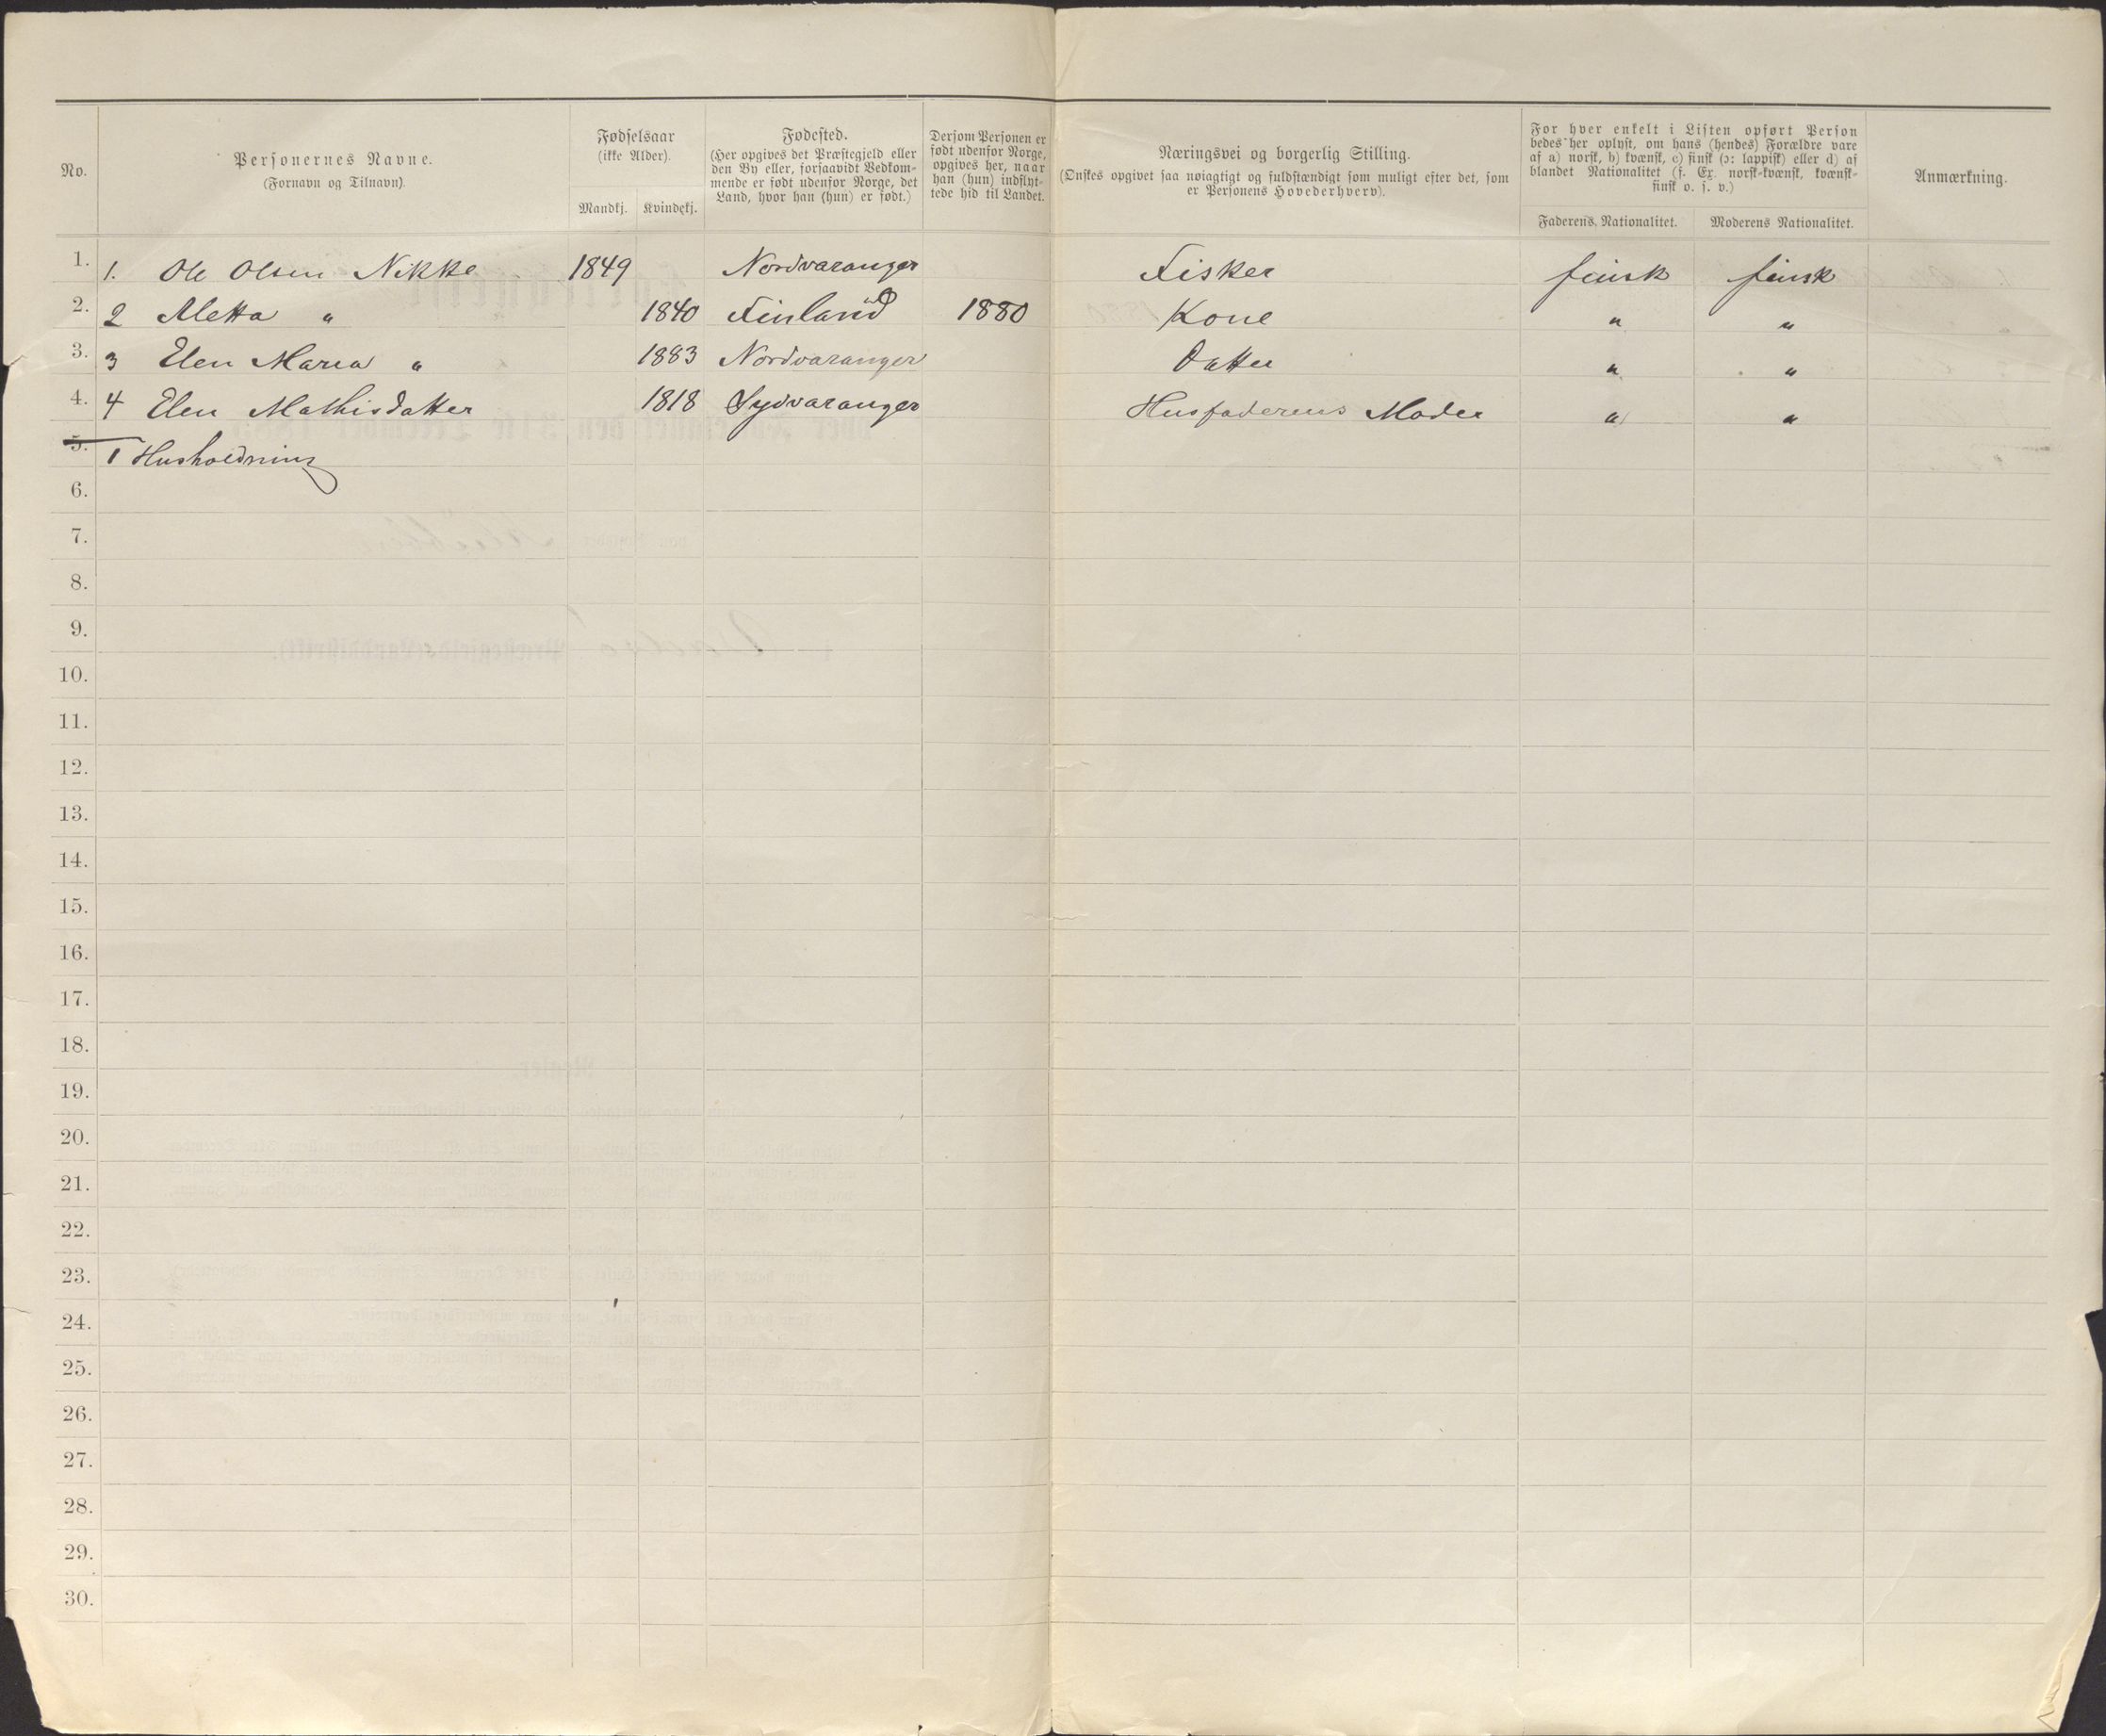 No.
Personernes Navne.
(Fornavn og Tilnavn).
Fødselsaar
(ikke Alder).
Mandkj. Kvindekj.
Fødested.
(Her opgives det Præstegjeld eller
den By eller, forsaavidt Vedkom-
mende er født udenfor Norge, det
Land, hvor han (hun) er født.)
Dersom Personen er
født udenfor Norge,
opgives her, naar
han (hun) indflyt-
tede hid til Landet.
Næringsvei og borgerlig Stilling.
(Ønskes opgivet saa nøiagtigt og fuldstændigt som muligt efter det, som
er Personens Hovederhverv).
For hver enkelt i Listen opført Person
bedes her oplyst, om hans (hendes) Forældre vare
af a) norsk, b) kvænsk, c) finsk (ɔ: lappisk) eller d) af
blandet Nationalitet (f. Ex. norsk-kvænsk, kvænsk-
finsk o. s. v.)
Faderens Nationalitet. Moderens Nationalitet.
Anmærkning.
1. 1. Ole Olsen Nikke 1849 Nordvaranger Fisker finsk finsk
2. 2 Aletta " 1840 Finland 1880 Kone " "
3. 3 Elen Maria " 1883 Nordvaranger Datter " "
4. 4 Elen Mathisdatter 1818 Sydvaranger Husfaderens Moder " "
5. 1 Husholdning
6.
7.
8.
9.
10.
11.
12.
13.
14.
15.
16.
17.
18.
19.
20.
21.
22.
23.
24.
25.
26.
27.
28.
29.
30.